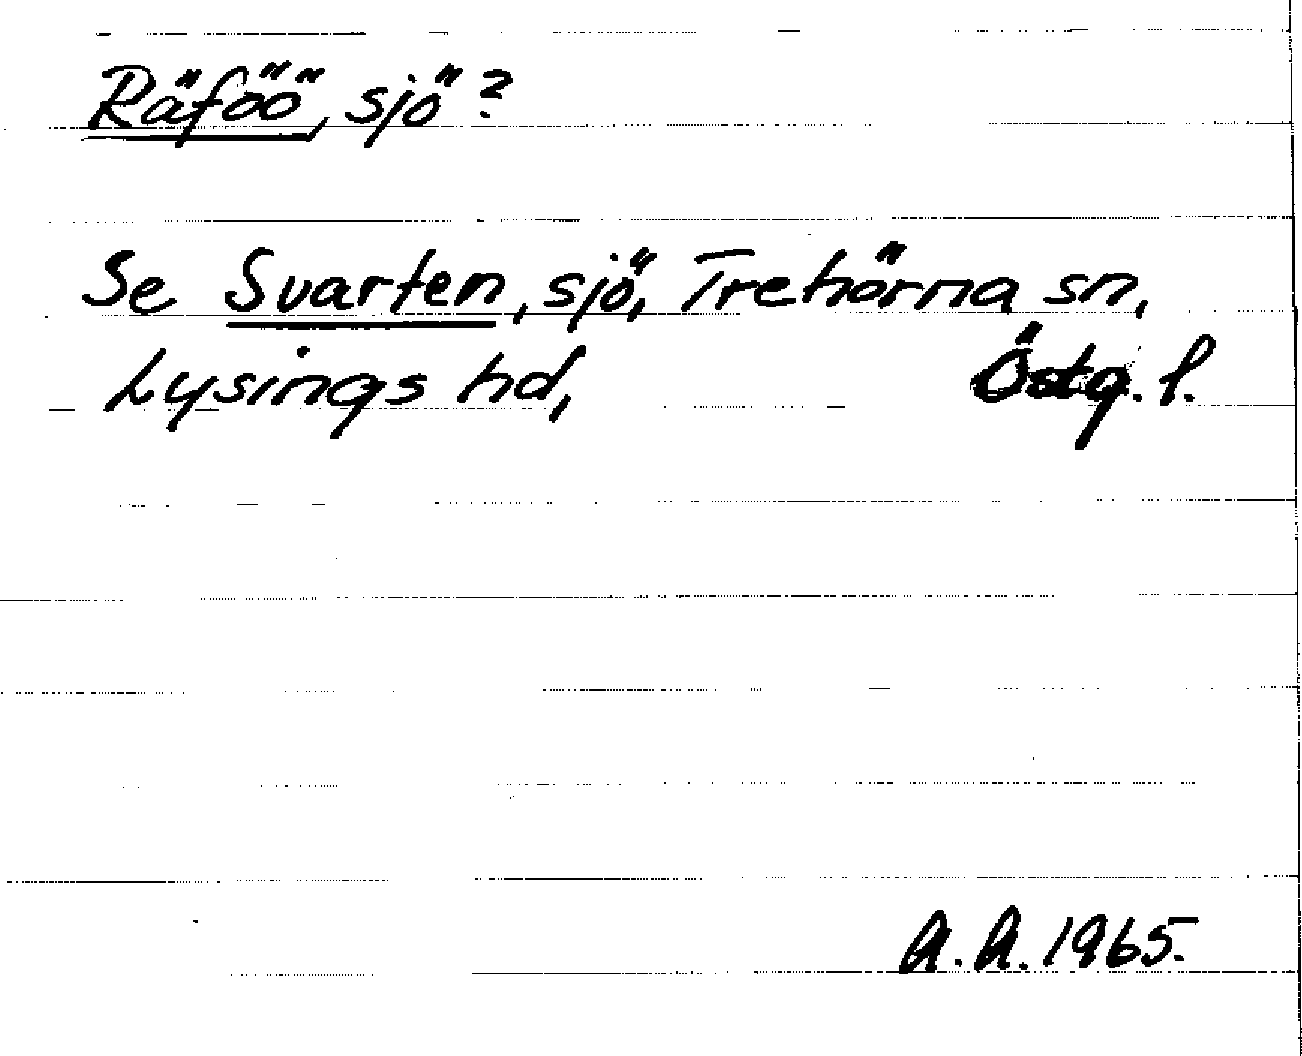 Räföö, sjö?
Se Svarten, sjö, Trehörna sn,
Lysings hd, Östg. l.
A.A. 1965.